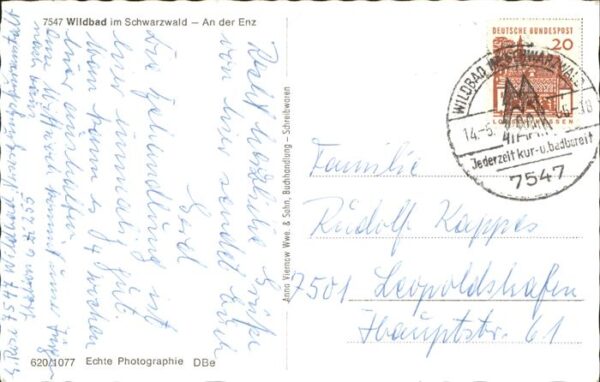 7547 Wildbad im Schwarzwald – An der Enz
Recht herzliche Grüße
von hier sendet Euch
Gerd
Die Behandlung ist
hier einmalig gut.
Man kann es 4 Wochen
hier aushalten
Am Mittwoch kommt
nach
620/1077 Echte Photographie DBe
Anna Viernow Wwe. & Sohn, Buchhandlung – Schreibwaren
DEUTSCHE BUNDESPOST
20
WILDBAD IM SCHWARZWALD
14.-5.
Jederzeit kur- u. badbereit
7547
Familie
Rudolf Kappes
7501 Leopoldshafen
Hauptstr. 61